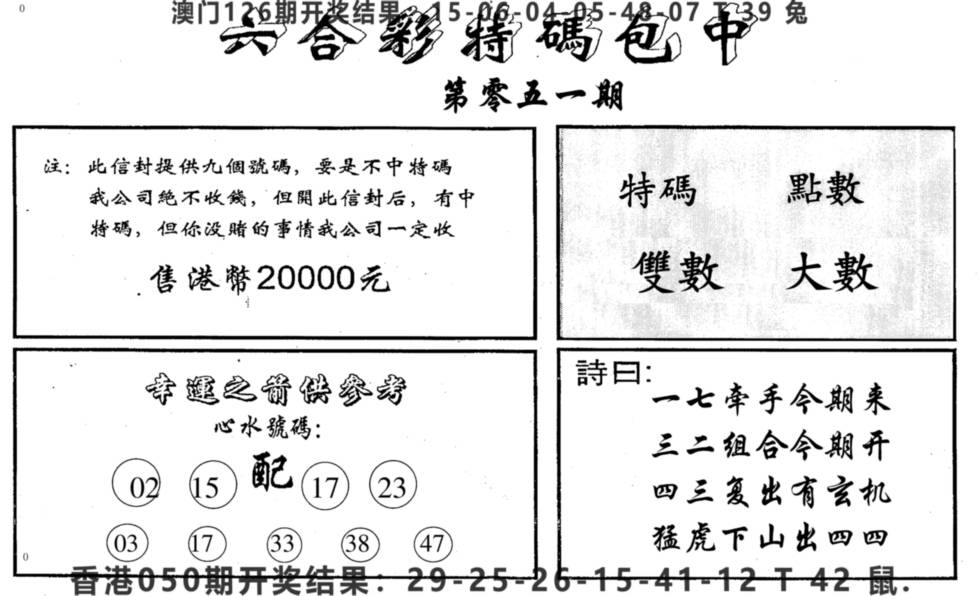 澳门126期开奖结果：15-06-04-05-48-07 T 39 兔
六合彩特碼包中
第零五一期
注：此信封提供九個號碼，要是不中特碼
我公司絕不收錢，但開此信封后，有中
特碼，但你没賭的事情我公司一定收
售港幣20000元
特碼 點數
雙數 大數
幸運之箭供參考
心水號碼：
配
02 15 17 23
03 17 33 38 47
詩曰:
一七牵手今期来
三二组合今期开
四三复出有玄机
猛虎下山出四四
香港050期开奖结果：29-25-26-15-41-12 T 42 鼠.